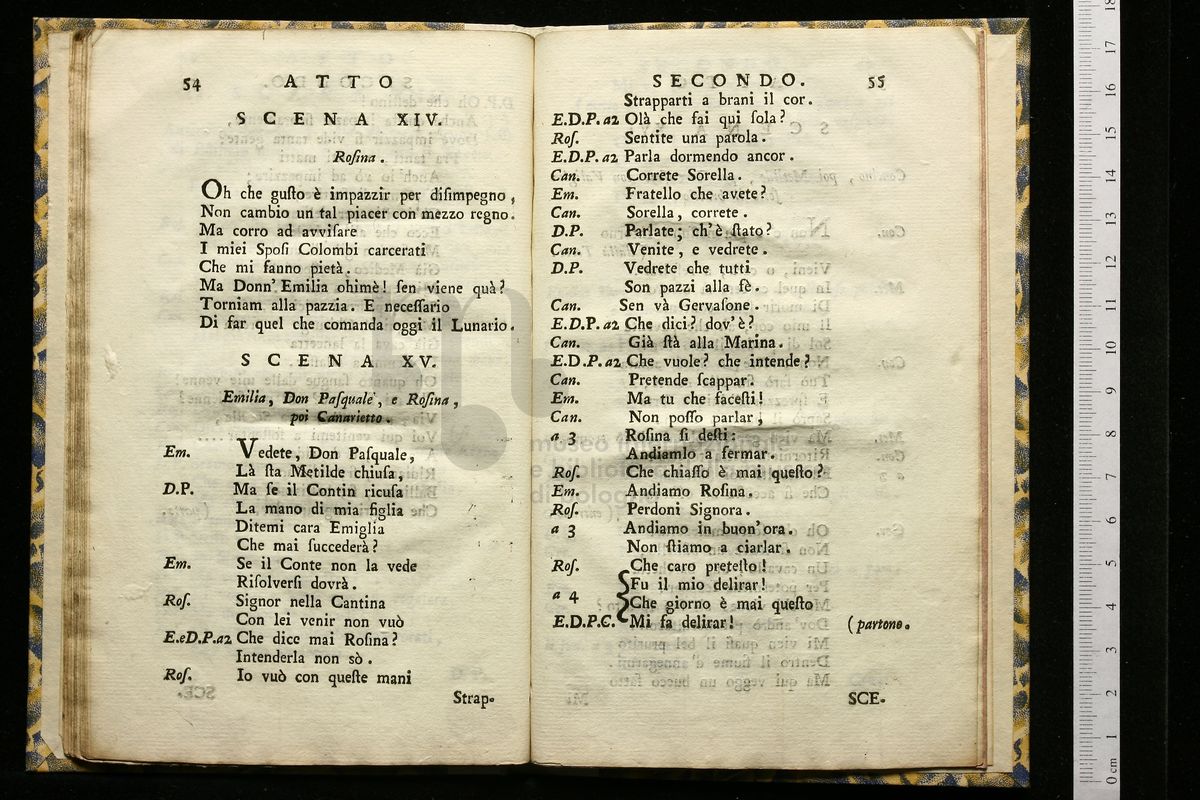 54 ATTO
SCENA XIV.
Rosina.
Oh che gusto è impazzir per disimpegno,
Non cambio un tal piacer con mezzo regno.
Ma corro ad avvisare
I miei Sposi Colombi carcerati
Che mi fanno pietà.
Ma Donn' Emilia ohimè! sen viene quà?
Torniam alla pazzia. E necessario
Di far quel che comanda oggi il Lunario.
SCENA XV.
Emilia, Don Pasquale, e Rosina,
poi Canarietto.
Em. Vedete, Don Pasquale,
Là sta Metilde chiusa,
D.P. Ma se il Contin ricusa
La mano di mia figlia
Ditemi cara Emiglia
Che mai succederà?
Em. Se il Conte non la vede
Risolversi dovrà.
Ros. Signor nella Cantina
Con lei venir non vuò
E.eD.P.a2 Che dice mai Rosina?
Intenderla non sò.
Ros. Io vuò con queste mani
Strap-
SECONDO. 55
Strapparti a brani il cor.
E.D.P. a2 Olà che fai qui sola?
Ros. Sentite una parola.
E.D.P. a2 Parla dormendo ancor.
Can. Correte Sorella.
Em. Fratello che avete?
Can. Sorella, correte.
D.P. Parlate; ch'è stato?
Can. Venite, e vedrete.
D.P. Vedrete che tutti
Son pazzi alla fè.
Can. Sen và Gervasone.
E.D.P. a2 Che dici? dov'è?
Can. Già stà alla Marina.
E.D.P. a2 Che vuole? che intende?
Can. Pretende scappar.
Em. Ma tu che facesti!
Can. Non posso parlar;
a 3 Rosina si desti:
Andiamlo a fermar.
Ros. Che chiasso è mai questo?
Em. Andiamo Rosina.
Ros. Perdoni Signora.
a 3 Andiamo in buon'ora.
Non stiamo a ciarlar.
Ros. Che caro pretesto!
Fu il mio delirar!
a 4 Che giorno è mai questo
E.D.P.C. Mi fa delirar! (partono.
SCE-